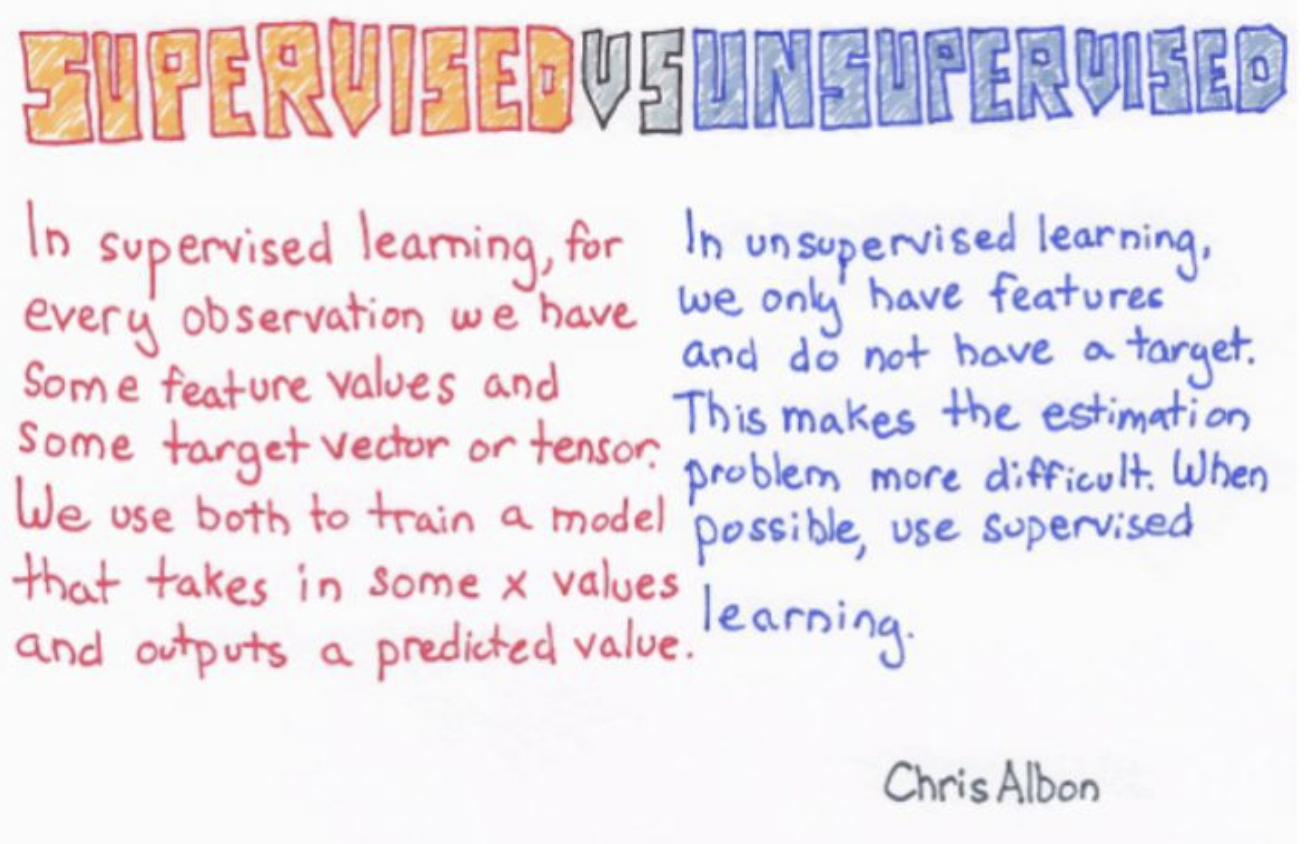 SUPERVISED VS UNSUPERVISED
In supervised learning, for
every observation we have
some feature values and
some target vector or tensor.
We use both to train a model
that takes in some x values
and outputs a predicted value.
In unsupervised learning,
we only have features
and do not have a target.
This makes the estimation
problem more difficult. When
possible, use supervised
learning.
Chris Albon